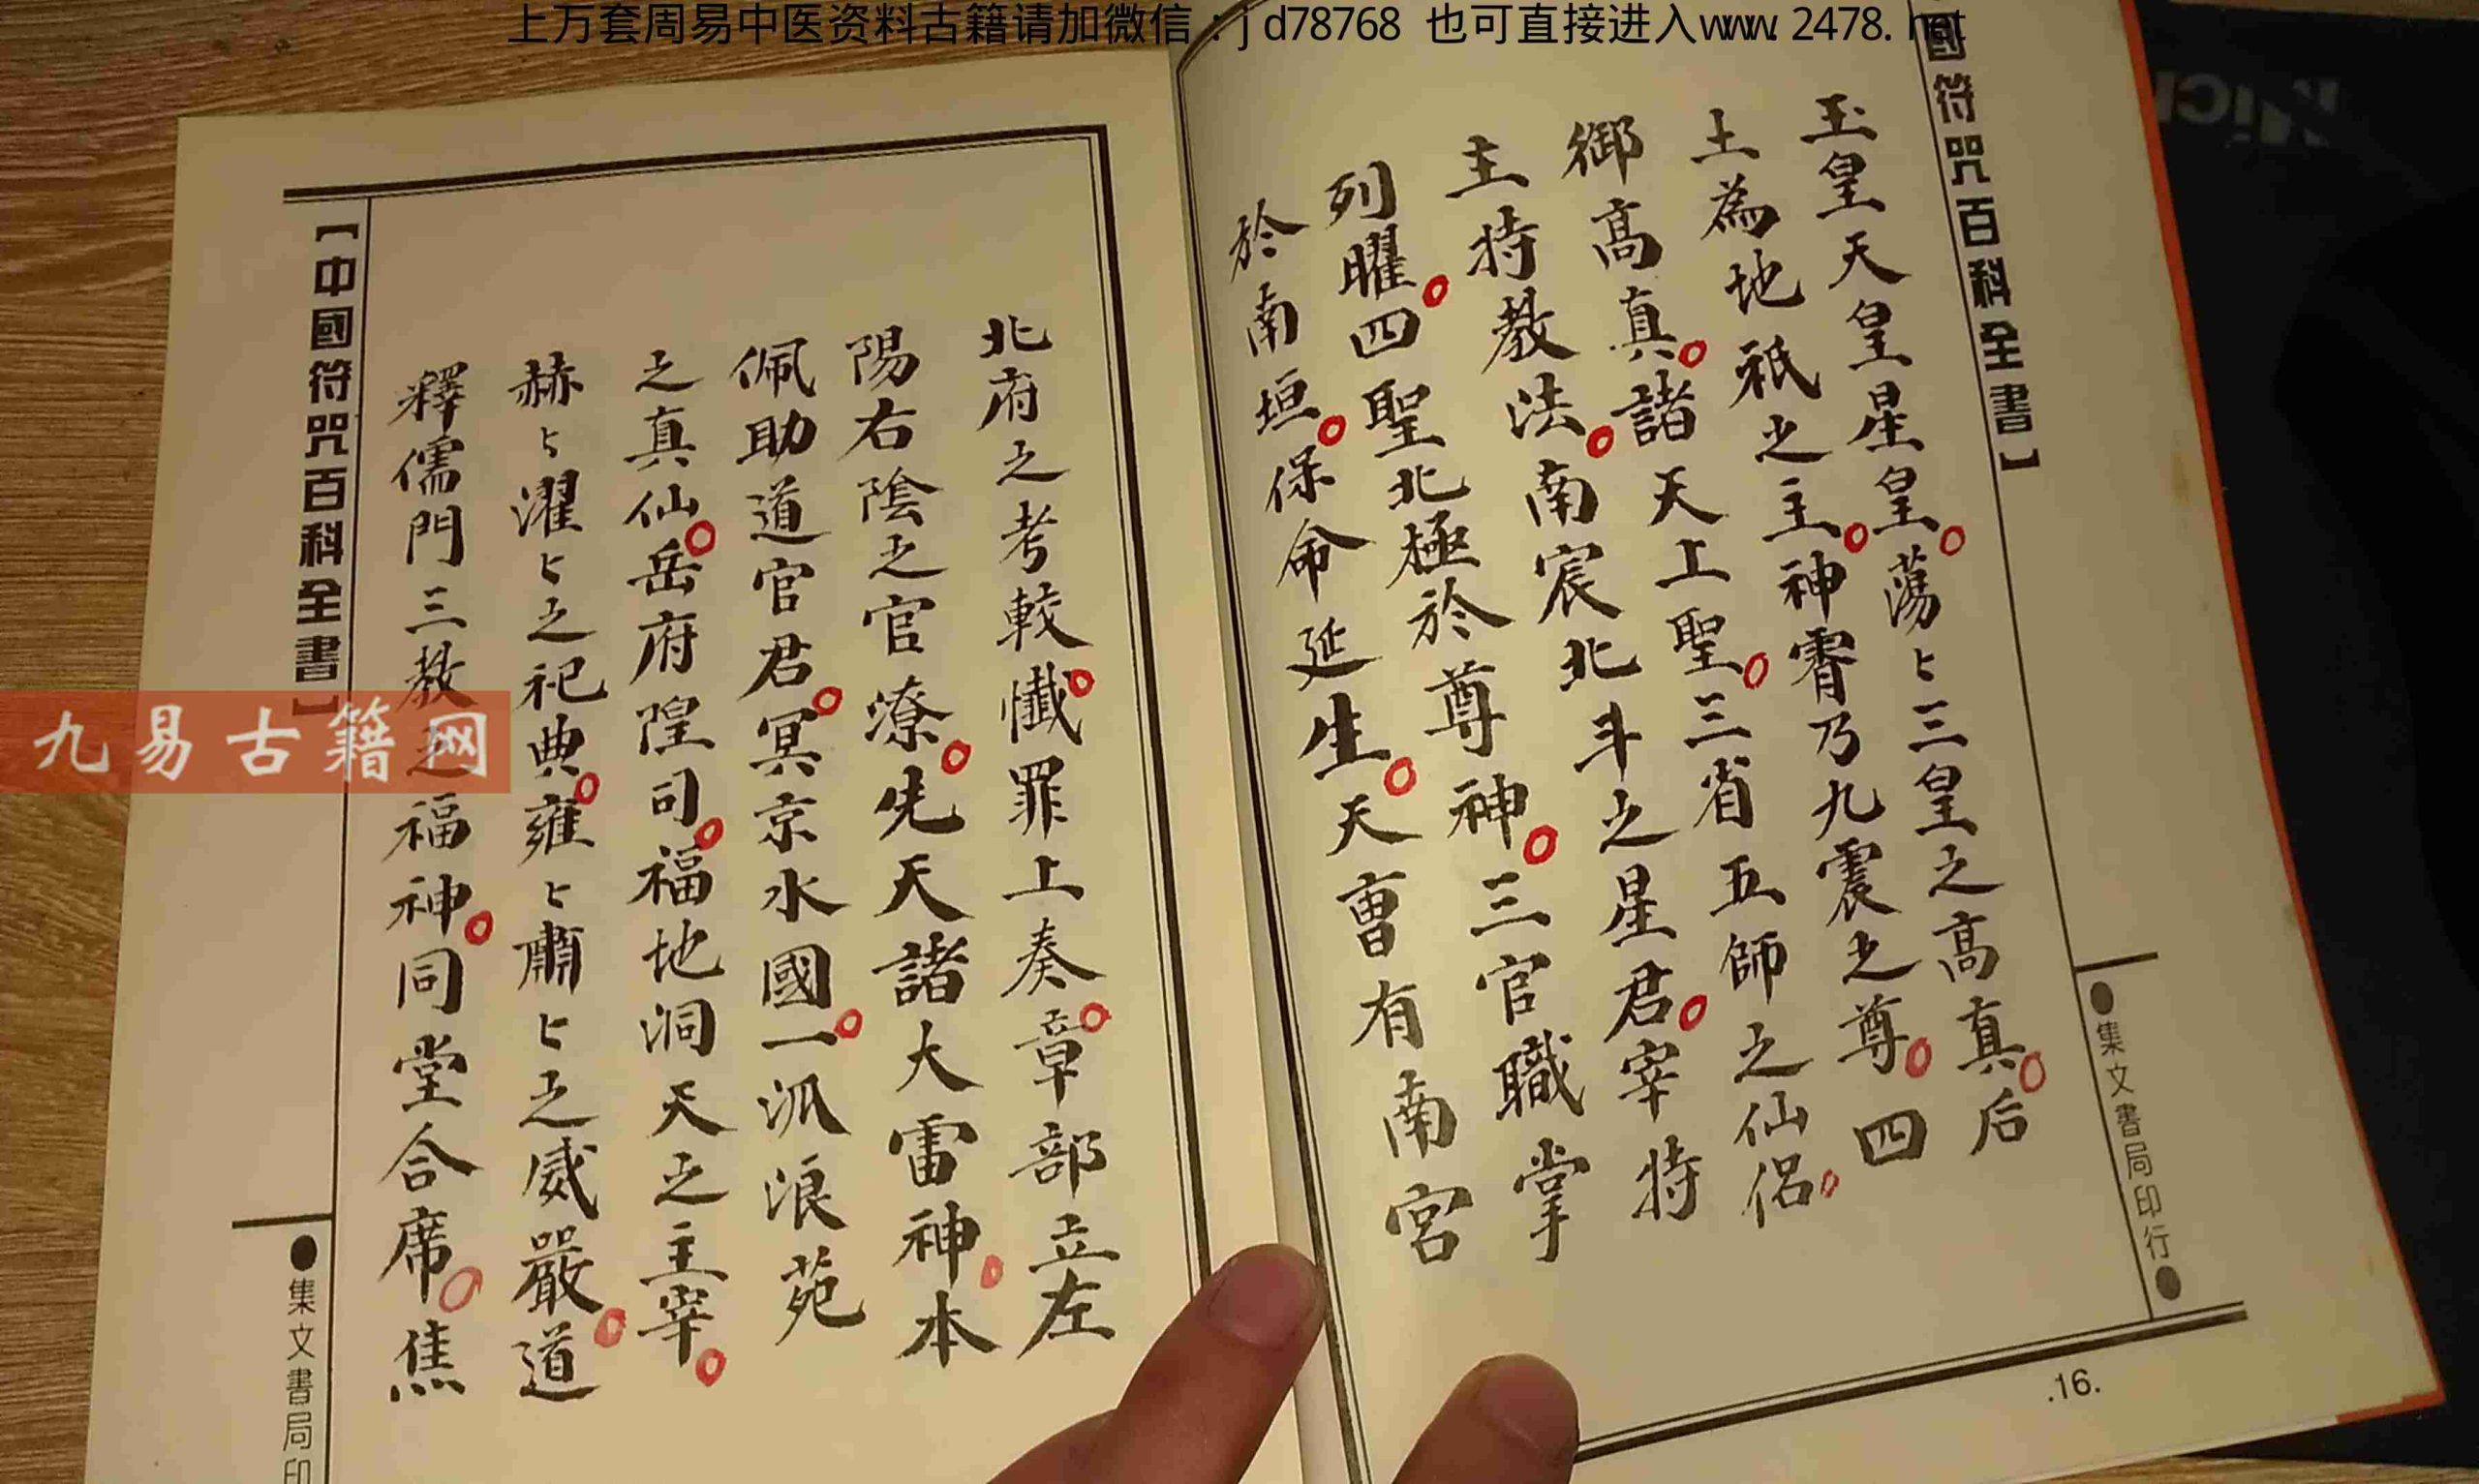 上万套周易中医资料古籍请加微信：jd78768 也可直接进入www.2478.net
國符咒百科全書】
玉皇天皇星皇蕩々三皇之高真后
土為地祇之主神霄乃九震之尊四
御高真諸天上聖三省五師之仙侶
主持教法南宸北斗之星君宰持
列曜四聖北極於尊神三官職掌
於南垣保命延生天曹有南宮
●集文書局印行●
.16.
北府之考較懺罪上奏章部立左
陽右陰之官潦先天諸大雷神本
佩助道官君冥京水國一派浪苑
之真仙岳府隍司福地洞天之主宰
赫々濯々之祀典雍々肅々之威嚴道
釋儒門三教之福神同堂合席焦
【中國符咒百科全書】
●集文書局印
九易古籍网